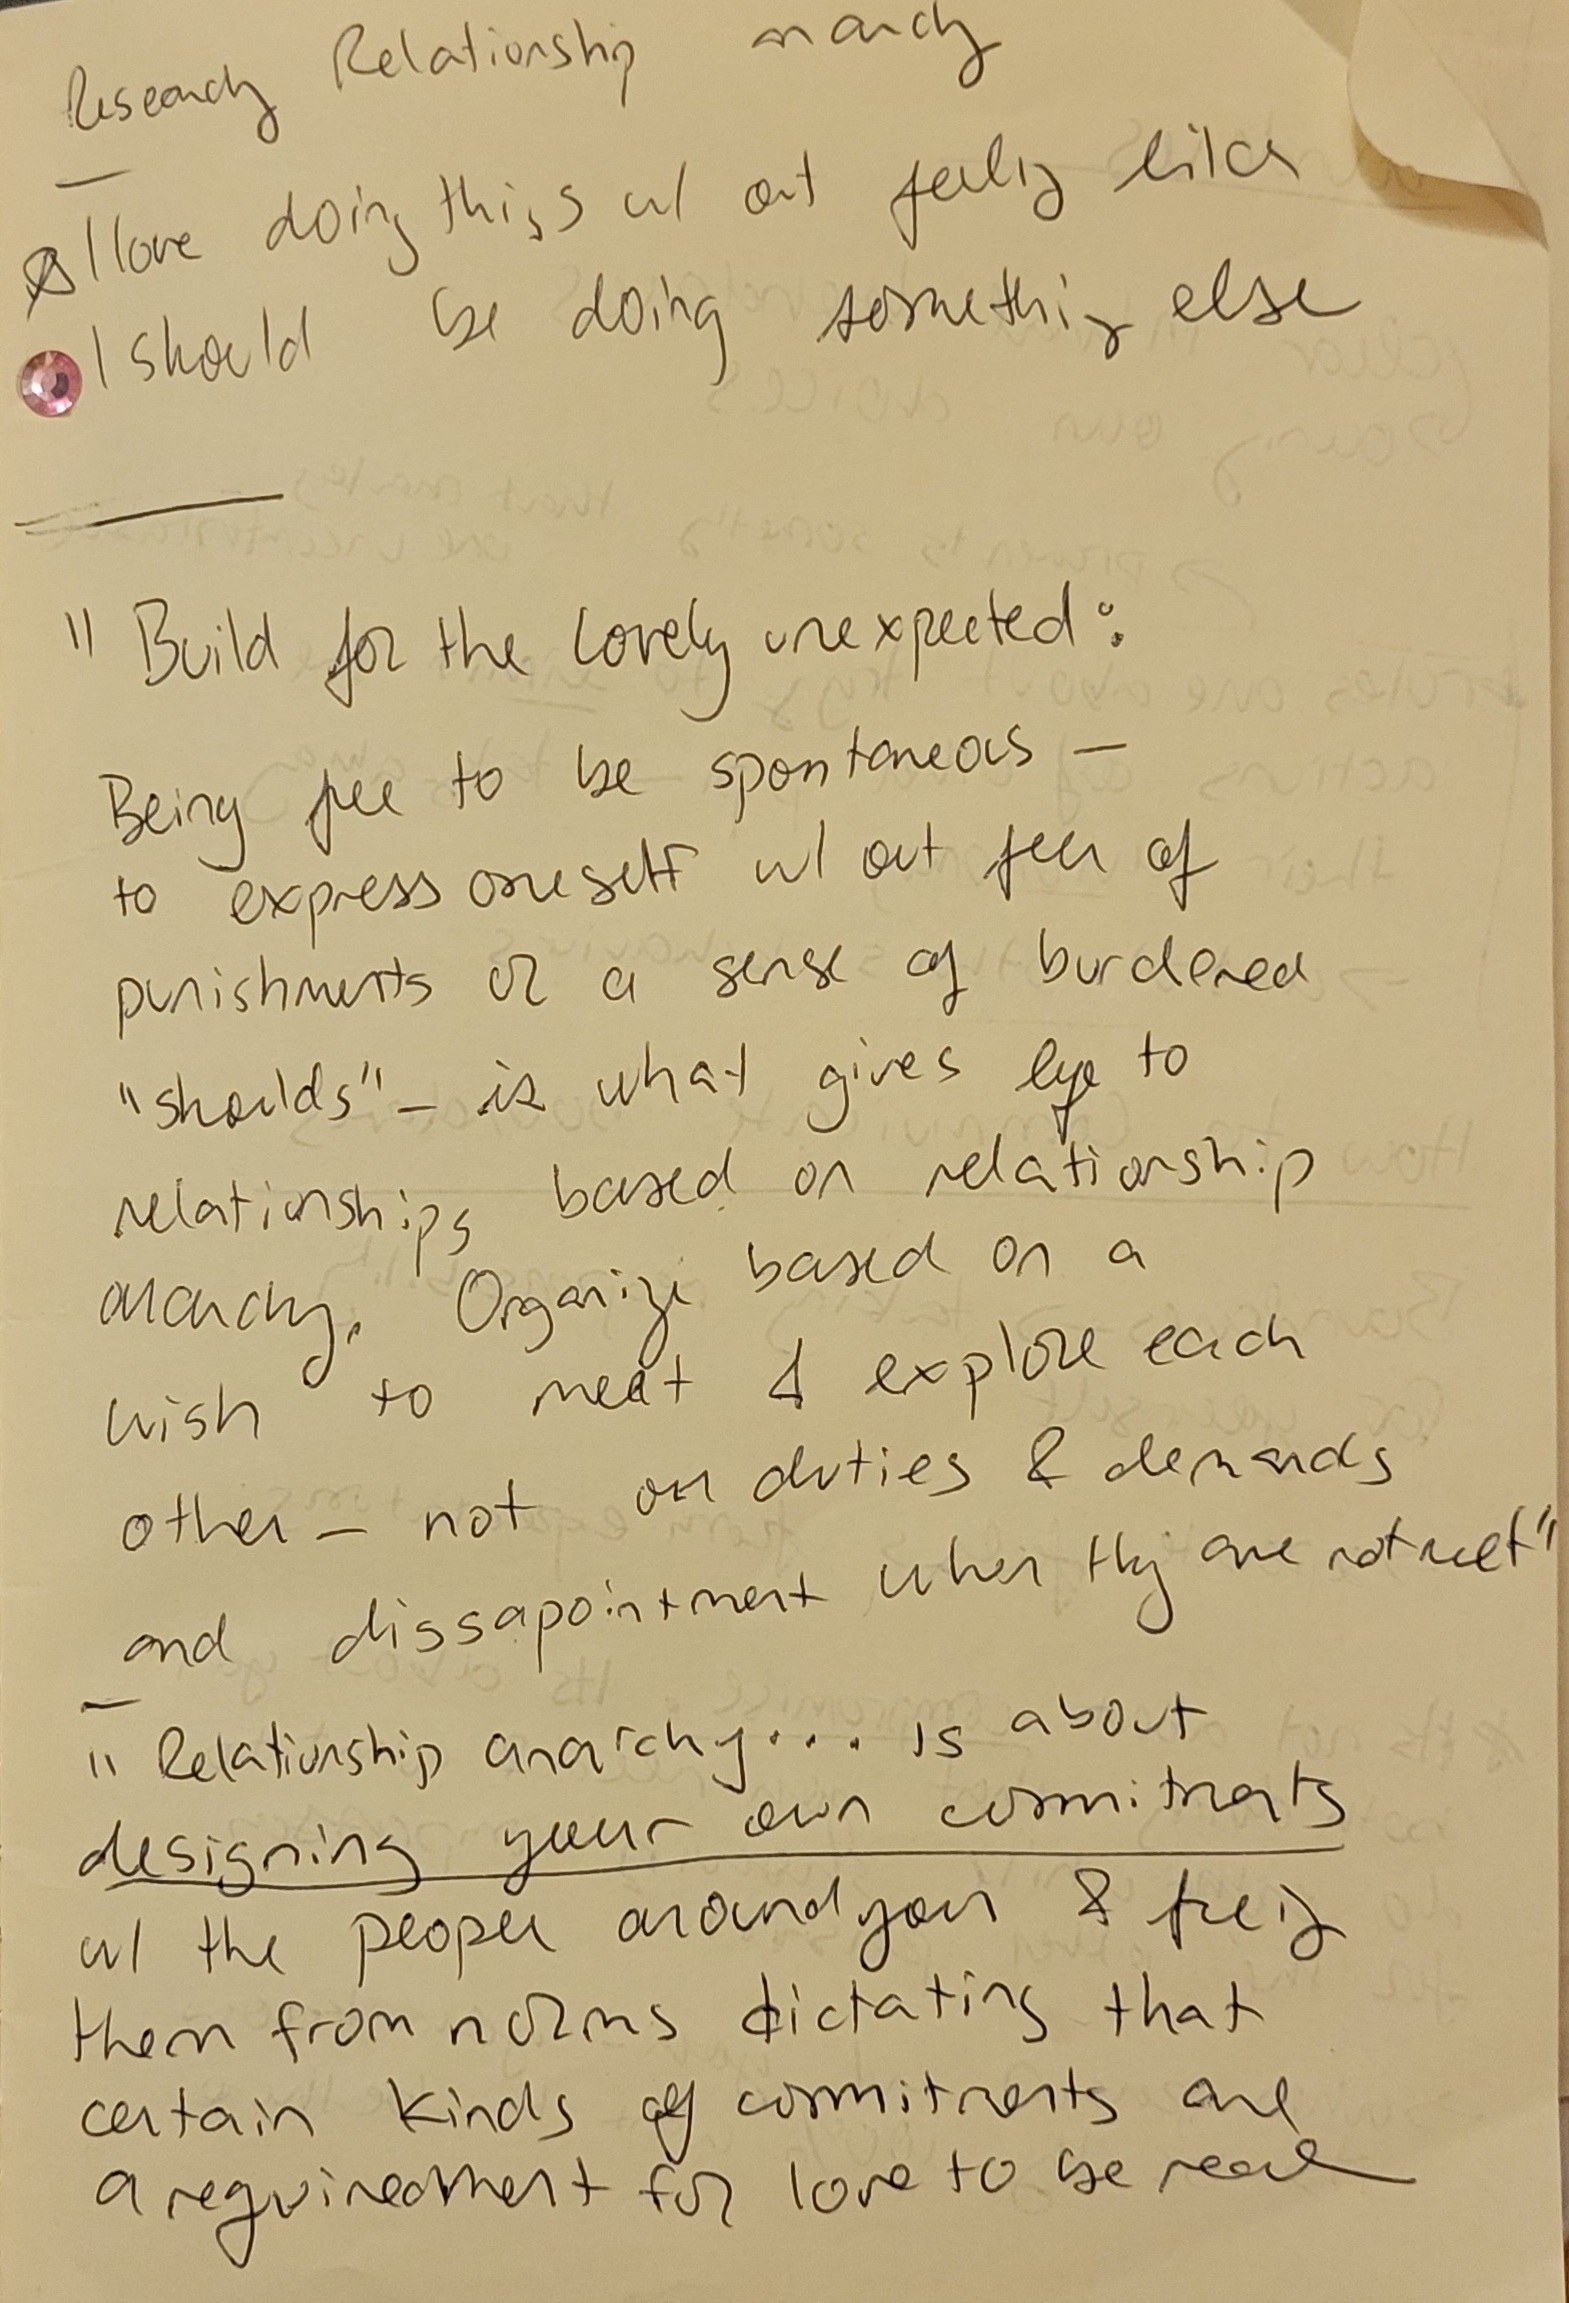 Research Relationship anarchy
I love doing things w/ out feeling like
I should be doing something else
"Build for the lovely unexpected:
Being free to be spontaneous —
to express oneself w/ out fear of
punishments or a sense of burdened
"shoulds" — is what gives life to
relationships based on relationship
anarchy. Organize based on a
wish to meet & explore each
other — not on duties & demands
and dissapointment when they are not met"
" Relationship anarchy... is about
designing your own commitments
w/ the people around you & freeing
them from norms dictating that
certain kinds of commitments are
a requirement for love to be real